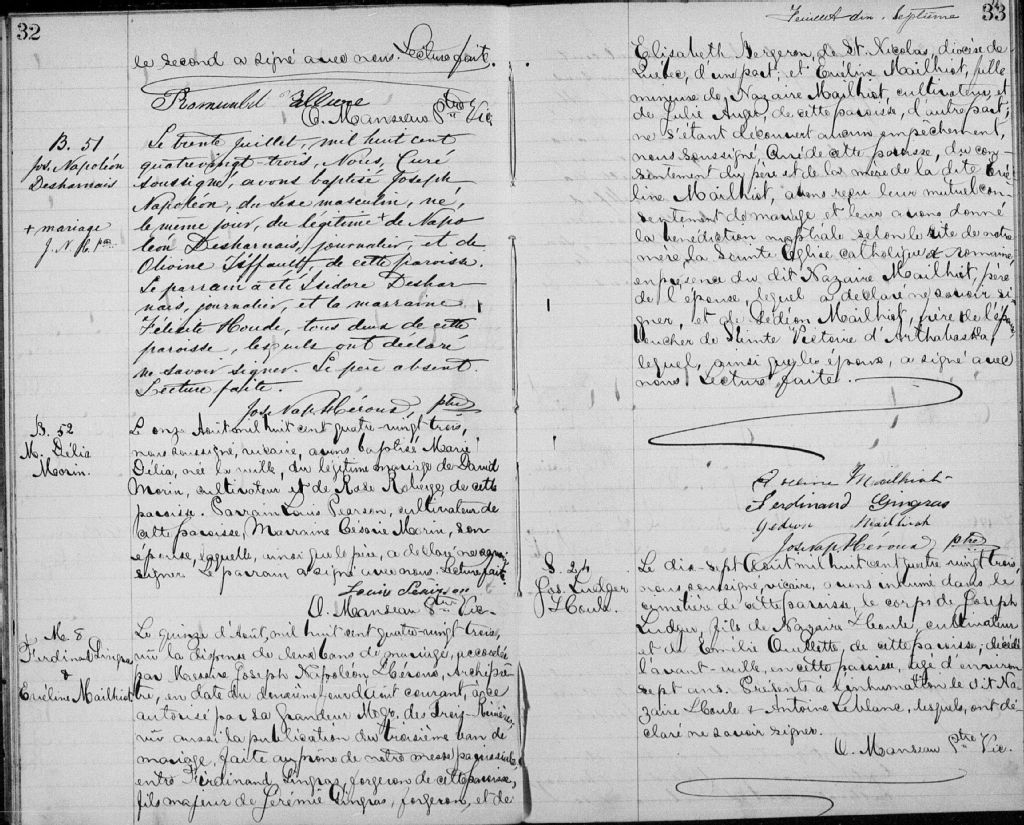 32
le second a signé avec nous. Lecture faite.
Romuald Allune
O. Manseau Ptre Vic.
B. 51
Jos. Napoléon
Desharnais
+ mariage
J. N. H. Ptre
Le trente juillet, mil huit cent
quatrevingt-trois, Nous, Curé
soussigné, avons baptisé Joseph
Napoléon, du sexe masculin, né,
le même jour, du légitime + de Napo
léon Desharnais, journalier, et de
Olivine Tiffault de cette paroisse.
Le parrain a été Isidore Deshar
nais, journalier, et la marraine
Félicité Houde, tous deux de cette
paroisse, lesquels ont déclaré
ne savoir signer. Le père absent.
Lecture faite.
Jos. Nap. Héroux, ptre
B. 52
M. Délia
Morin.
Le onze Août mil huit cent quatre-vingt trois,
nous soussigné, vicaire, avons baptisé Marie
Délia, née la veille, du légitime mariage de David
Morin, cultivateur et de Rose Roberge, de cette
paroisse. Parrain Louis Pearson, cultivateur de
cette paroisse, Marraine Césarie Morin, son
épouse, laquelle, ainsi que le père, a déclaré ne savoir
signer. Le parrain a signé avec nous. Lecture faite.
Louis
O. Manseau Ptre Vic.
M. 8
Ferdinand Gingras
&
Evéline Mailhiot
Le quinze d'Août, mil huit cent quatre-vingt trois,
vu la dispense de deux bans de mariage, accordée
par Messire Joseph Napoléon Héroux, Archiprê
tre, en date du douzième jour d'août courant, à ce
autorisé par Sa Grandeur Mgr. des Trois-Rivières
vu aussi la publication du troisième ban de
mariage, faite au prône de notre messe paroissiale
entre Ferdinand Gingras, forgeron de cette paroisse,
fils majeur de Jérémie Gingras, forgeron, et de
Feuillet dix-Septième
33
Elisabeth Bergeron, de St. Nicolas, diocèse de
Québec, d'une part; et Evéline Mailhiot, fille
mineure de Nazaire Mailhiot, cultivateur, et
de Julie Auger, de cette paroisse, d'autre part;
ne s'étant découvert aucun empêchement,
nous soussigné, Curé de cette paroisse, du con-
sentement du père et de la mère de la dite Evé-
line Mailhiot, avons reçu leur mutuel con-
sentement de mariage et leur avons donné
la bénédiction nuptiale selon le rite de notre
mère, la Sainte Eglise catholique et romaine,
en présence du dit Nazaire Mailhiot, père
de l'épouse, lequel a déclaré ne savoir si
gner, et de Gédéon Mailhiot, frère de l'épouse
boucher de Sainte Victoire d'Arthabaska,
lequel, ainsi que les époux, a signé avec
nous. Lecture faite.
Eveline Mailhiot
Ferdinand Gingras
Gedeon Mailhiot
Jos. Nap. Héroux, ptre
S. 24
Jos. Ludger
Houle.
Le dix-sept Août mil huit cent quatre vingt trois,
nous soussigné, vicaire, avons inhumé dans le
cimetière de cette paroisse, le corps de Joseph
Ludger, fils de Nazaire Houle, cultivateur
et de Emilie Ouellette, de cette paroisse; décédé
l'avant-veille, en cette paroisse, âgé d'environ
sept ans. Présents à l'inhumation le dit Na
zaire Houle & Antoine Leblanc, lesquels, ont dé-
claré ne savoir signer.
O. Manseau Ptre Vic.